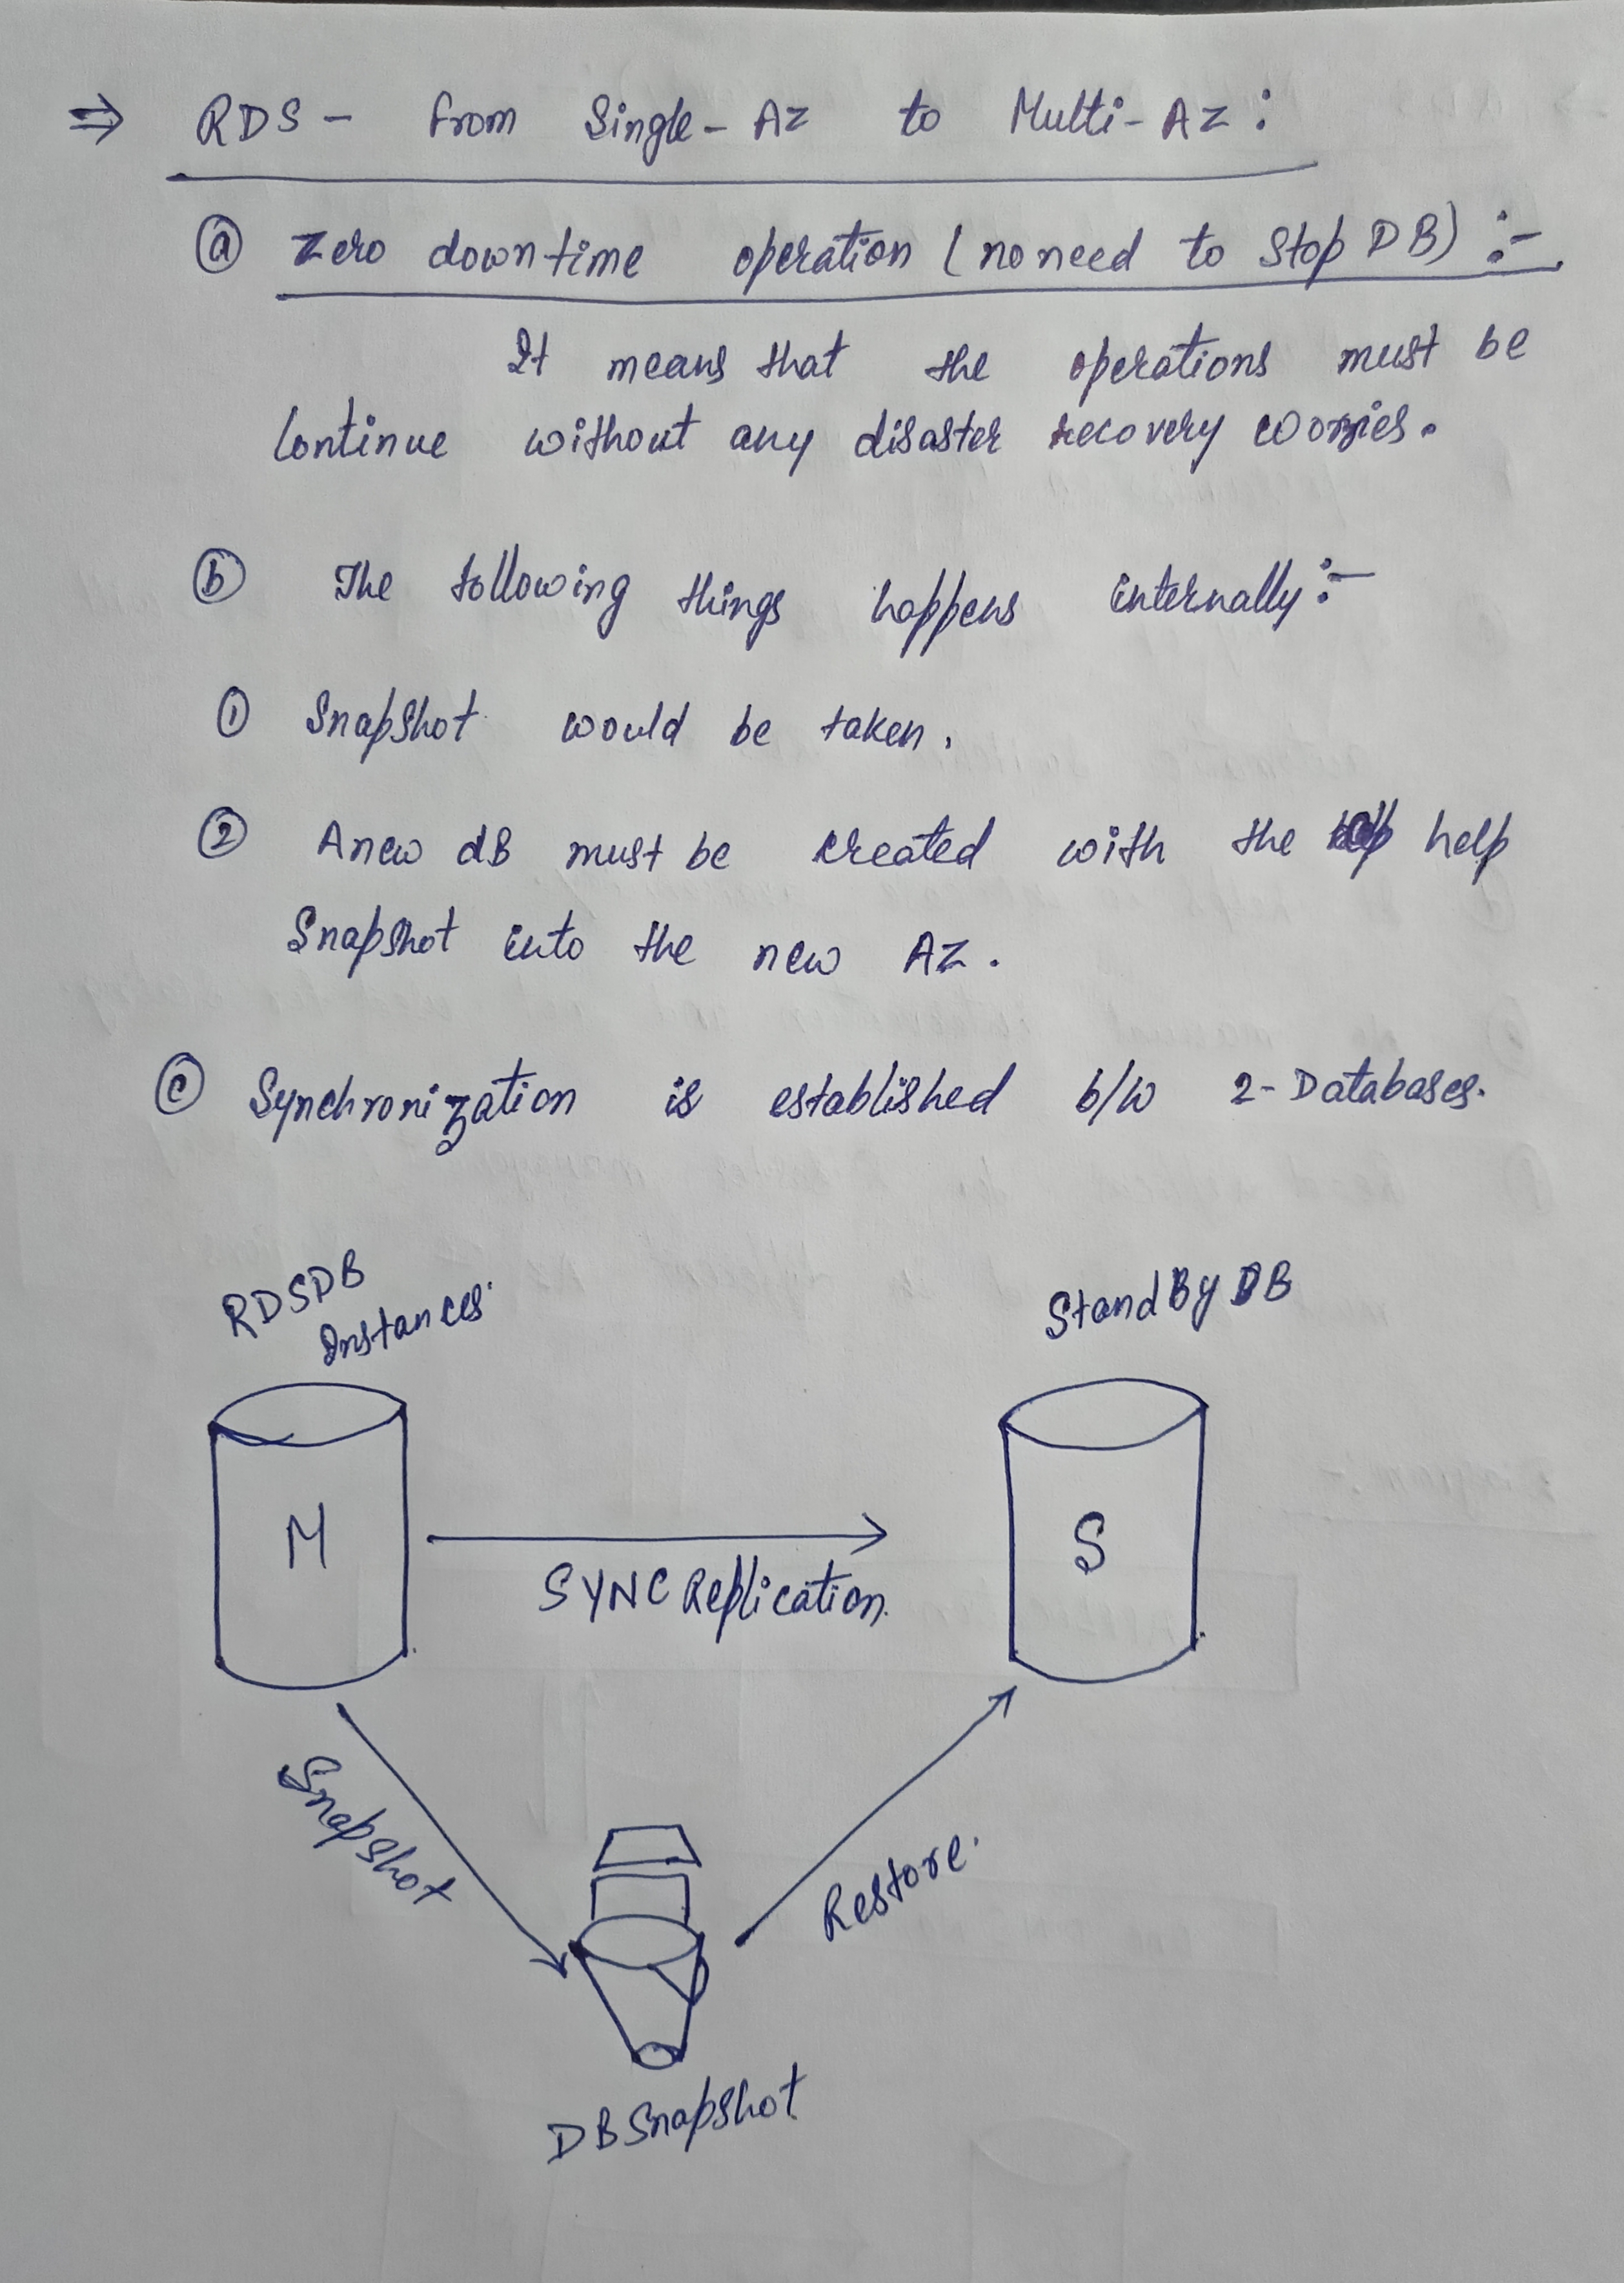 ⇒ RDS - from Single-AZ to Multi-AZ:
ⓐ Zero downtime operation (no need to Stop DB) :-
It means that the operations must be
Continue without any disaster recovery worries.
ⓑ The following things happens internally:-
① Snapshot would be taken.
② A new dB must be created with the help
Snapshot into the new AZ.
ⓒ Synchronization is established b/w 2-Databases.
RDSDB
Instances.
StandBy DB
M
S
SYNC Replication.
Snapshot
Restore.
DB Snapshot